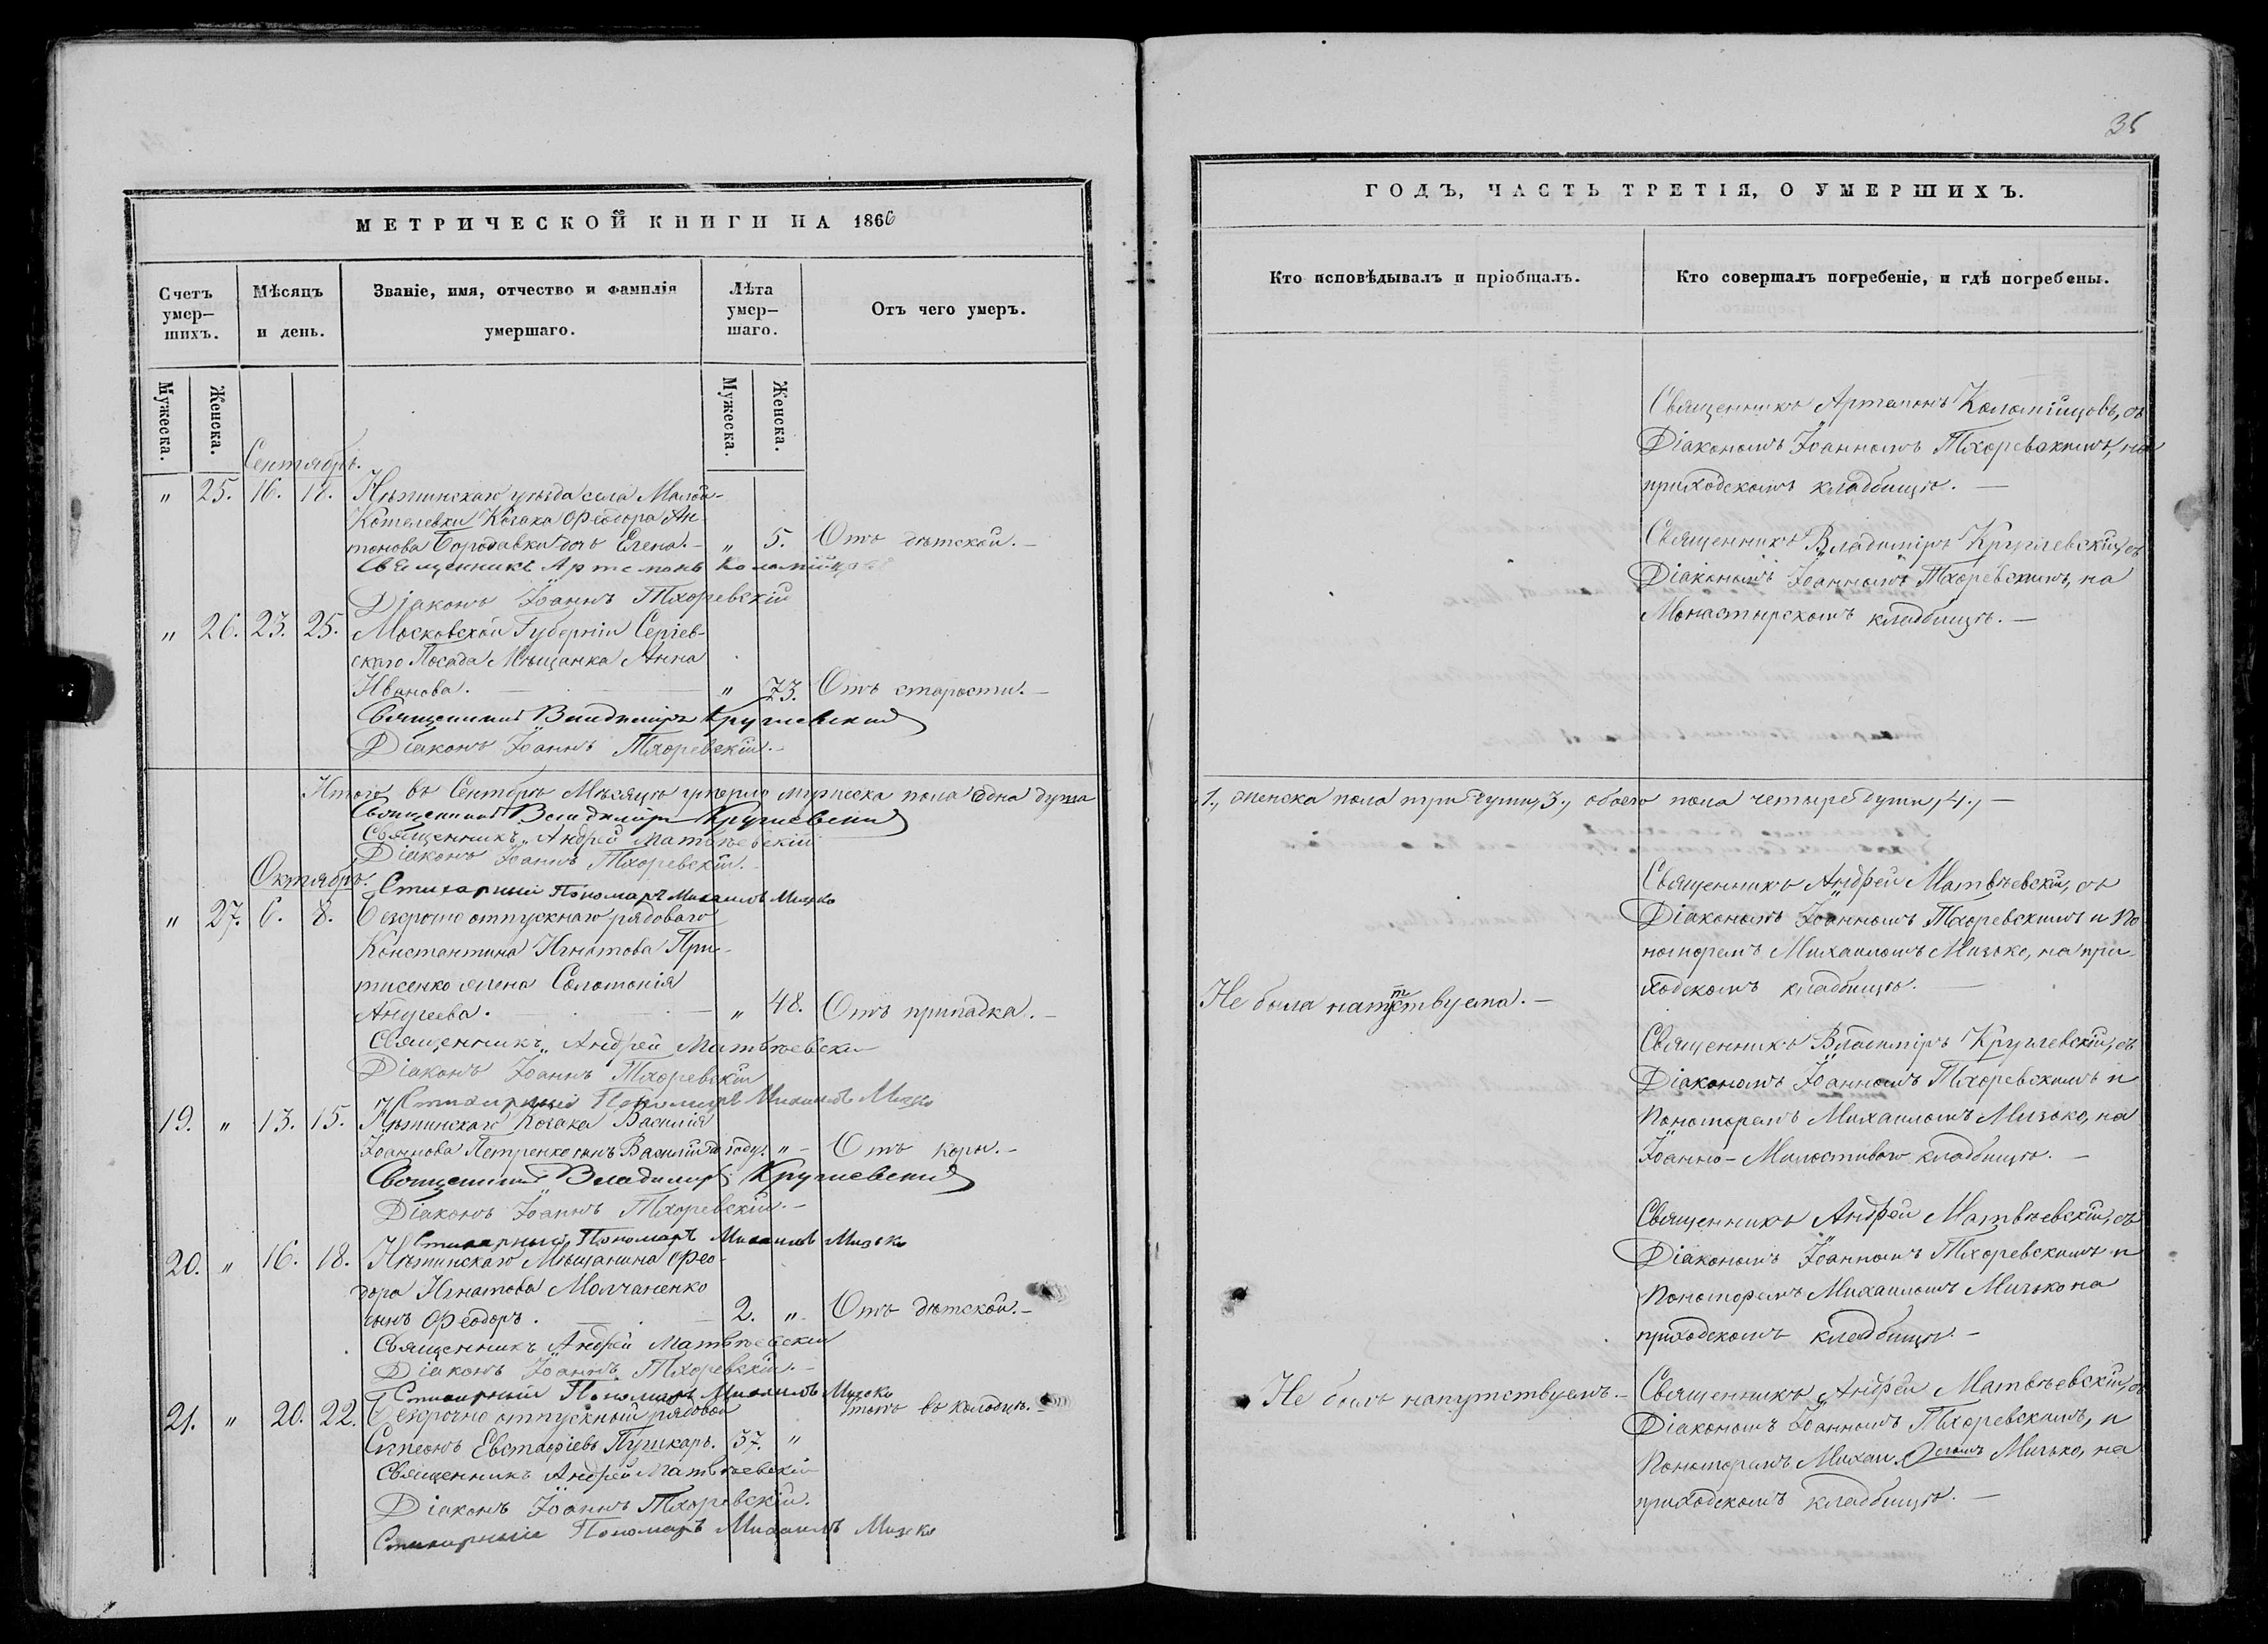 МЕТРИЧЕСКОЙ КНИГИ НА 1866
Счетъ умер-шихъ.
Мѣсяцъ и день.
Званіе, имя, отчество и фамилія умершаго.
Лѣта умер-шаго.
Отъ чего умеръ.
Мужеска.
Женска.
Мужеска.
Женска.
Сентябрь.
„ 25. 16. 18. Нѣжинскаго уѣзда села Малой-
Кошелевки Козака Феодора Ан-
тонова Бородавки дочь Елена. „ 5. Отъ дѣтской.
Священникъ Артемонъ Коломійцовъ
Діаконъ Іоаннъ Тхоревскій
„ 26. 23. 25. Московской Губерніи Сергіев-
скаго Посада Мѣщанка Анна
Иванова. „ 73. Отъ старости.
Священникъ Владиміръ Круглевскій
Діаконъ Іоаннъ Тхоревскій.
Итого въ Сентябрѣ Мѣсяцѣ умерло мужеска пола одна душа
Священникъ Владиміръ Круглевскій
Священникъ Андрей Матвѣевскій
Діаконъ Іоаннъ Тхоревскій.
Октябрь.
Стихарный Пономарь Михаилъ Мизько
„ 27. 6. 8. Безсрочно отпускнаго рядоваго
Константина Игнатова При-
тисенко жена Соломонія
Андреева. „ 48. Отъ припадка.
Священникъ Андрей Матвѣевскій
Діаконъ Іоаннъ Тхоревскій
Стихарный Пономарь Михаилъ Мизько
19. „ 13. 15. Нѣжинскаго Козака Василія
Іоаннова Петренко сынъ Василій году. „ Отъ кори.
Священникъ Владиміръ Круглевскій
Діаконъ Іоаннъ Тхоревскій.
Стихарный Пономарь Михаилъ Мизько
20. „ 16. 18. Нѣжинскаго Мѣщанина Фео-
дора Игнатова Молчаненко
сынъ Феодоръ. 2. „ Отъ дѣтской.
Священникъ Андрей Матвѣевскій
Діаконъ Іоаннъ Тхоревскій.
Стихарный Пономарь Михаилъ Мизько
21. „ 20. 22. Безсрочно отпускный рядовой въ колодцѣ.
Симеонъ Евстафіевъ Пушкарь. 37. „
Священникъ Андрей Матвѣевскій
Діаконъ Іоаннъ Тхоревскій.
Стихарный Пономарь Михаилъ Мизько
35
ГОДЪ, ЧАСТЬ ТРЕТІЯ, О УМЕРШИХЪ.
Кто исповѣдывалъ и пріобщалъ.
Кто совершалъ погребеніе, и гдѣ погребены.
Священникъ Артемонъ Коломійцовъ, съ
Діакономъ Іоанномъ Тхоревскимъ, на
приходскомъ кладбищѣ.
Священникъ Владиміръ Круглевскій, съ
Діакономъ Іоанномъ Тхоревскимъ, на
Монастырскомъ кладбищѣ.
1., женска пола три души, 3., обоего пола четыре души, 4.,
Священникъ Андрей Матвѣевскій, съ
Діакономъ Іоанномъ Тхоревскимъ и По-
номаремъ Михаиломъ Мизько, на при-
ходскомъ кладбищѣ.
Не была напутствуема.
Священникъ Владиміръ Круглевскій, съ
Діакономъ Іоанномъ Тхоревскимъ и
Пономаремъ Михаиломъ Мизько, на
Іоанно-Милостивомъ кладбищѣ.
Священникъ Андрей Матвѣевскій, съ
Діакономъ Іоанномъ Тхоревскимъ и
Пономаремъ Михаиломъ Мизько на
приходскомъ кладбищѣ.
Не былъ напутствуемъ.
Священникъ Андрей Матвѣевскій, съ
Діакономъ Іоанномъ Тхоревскимъ, и
Пономаремъ Михаиломъ Мизько, на
приходскомъ кладбищѣ.